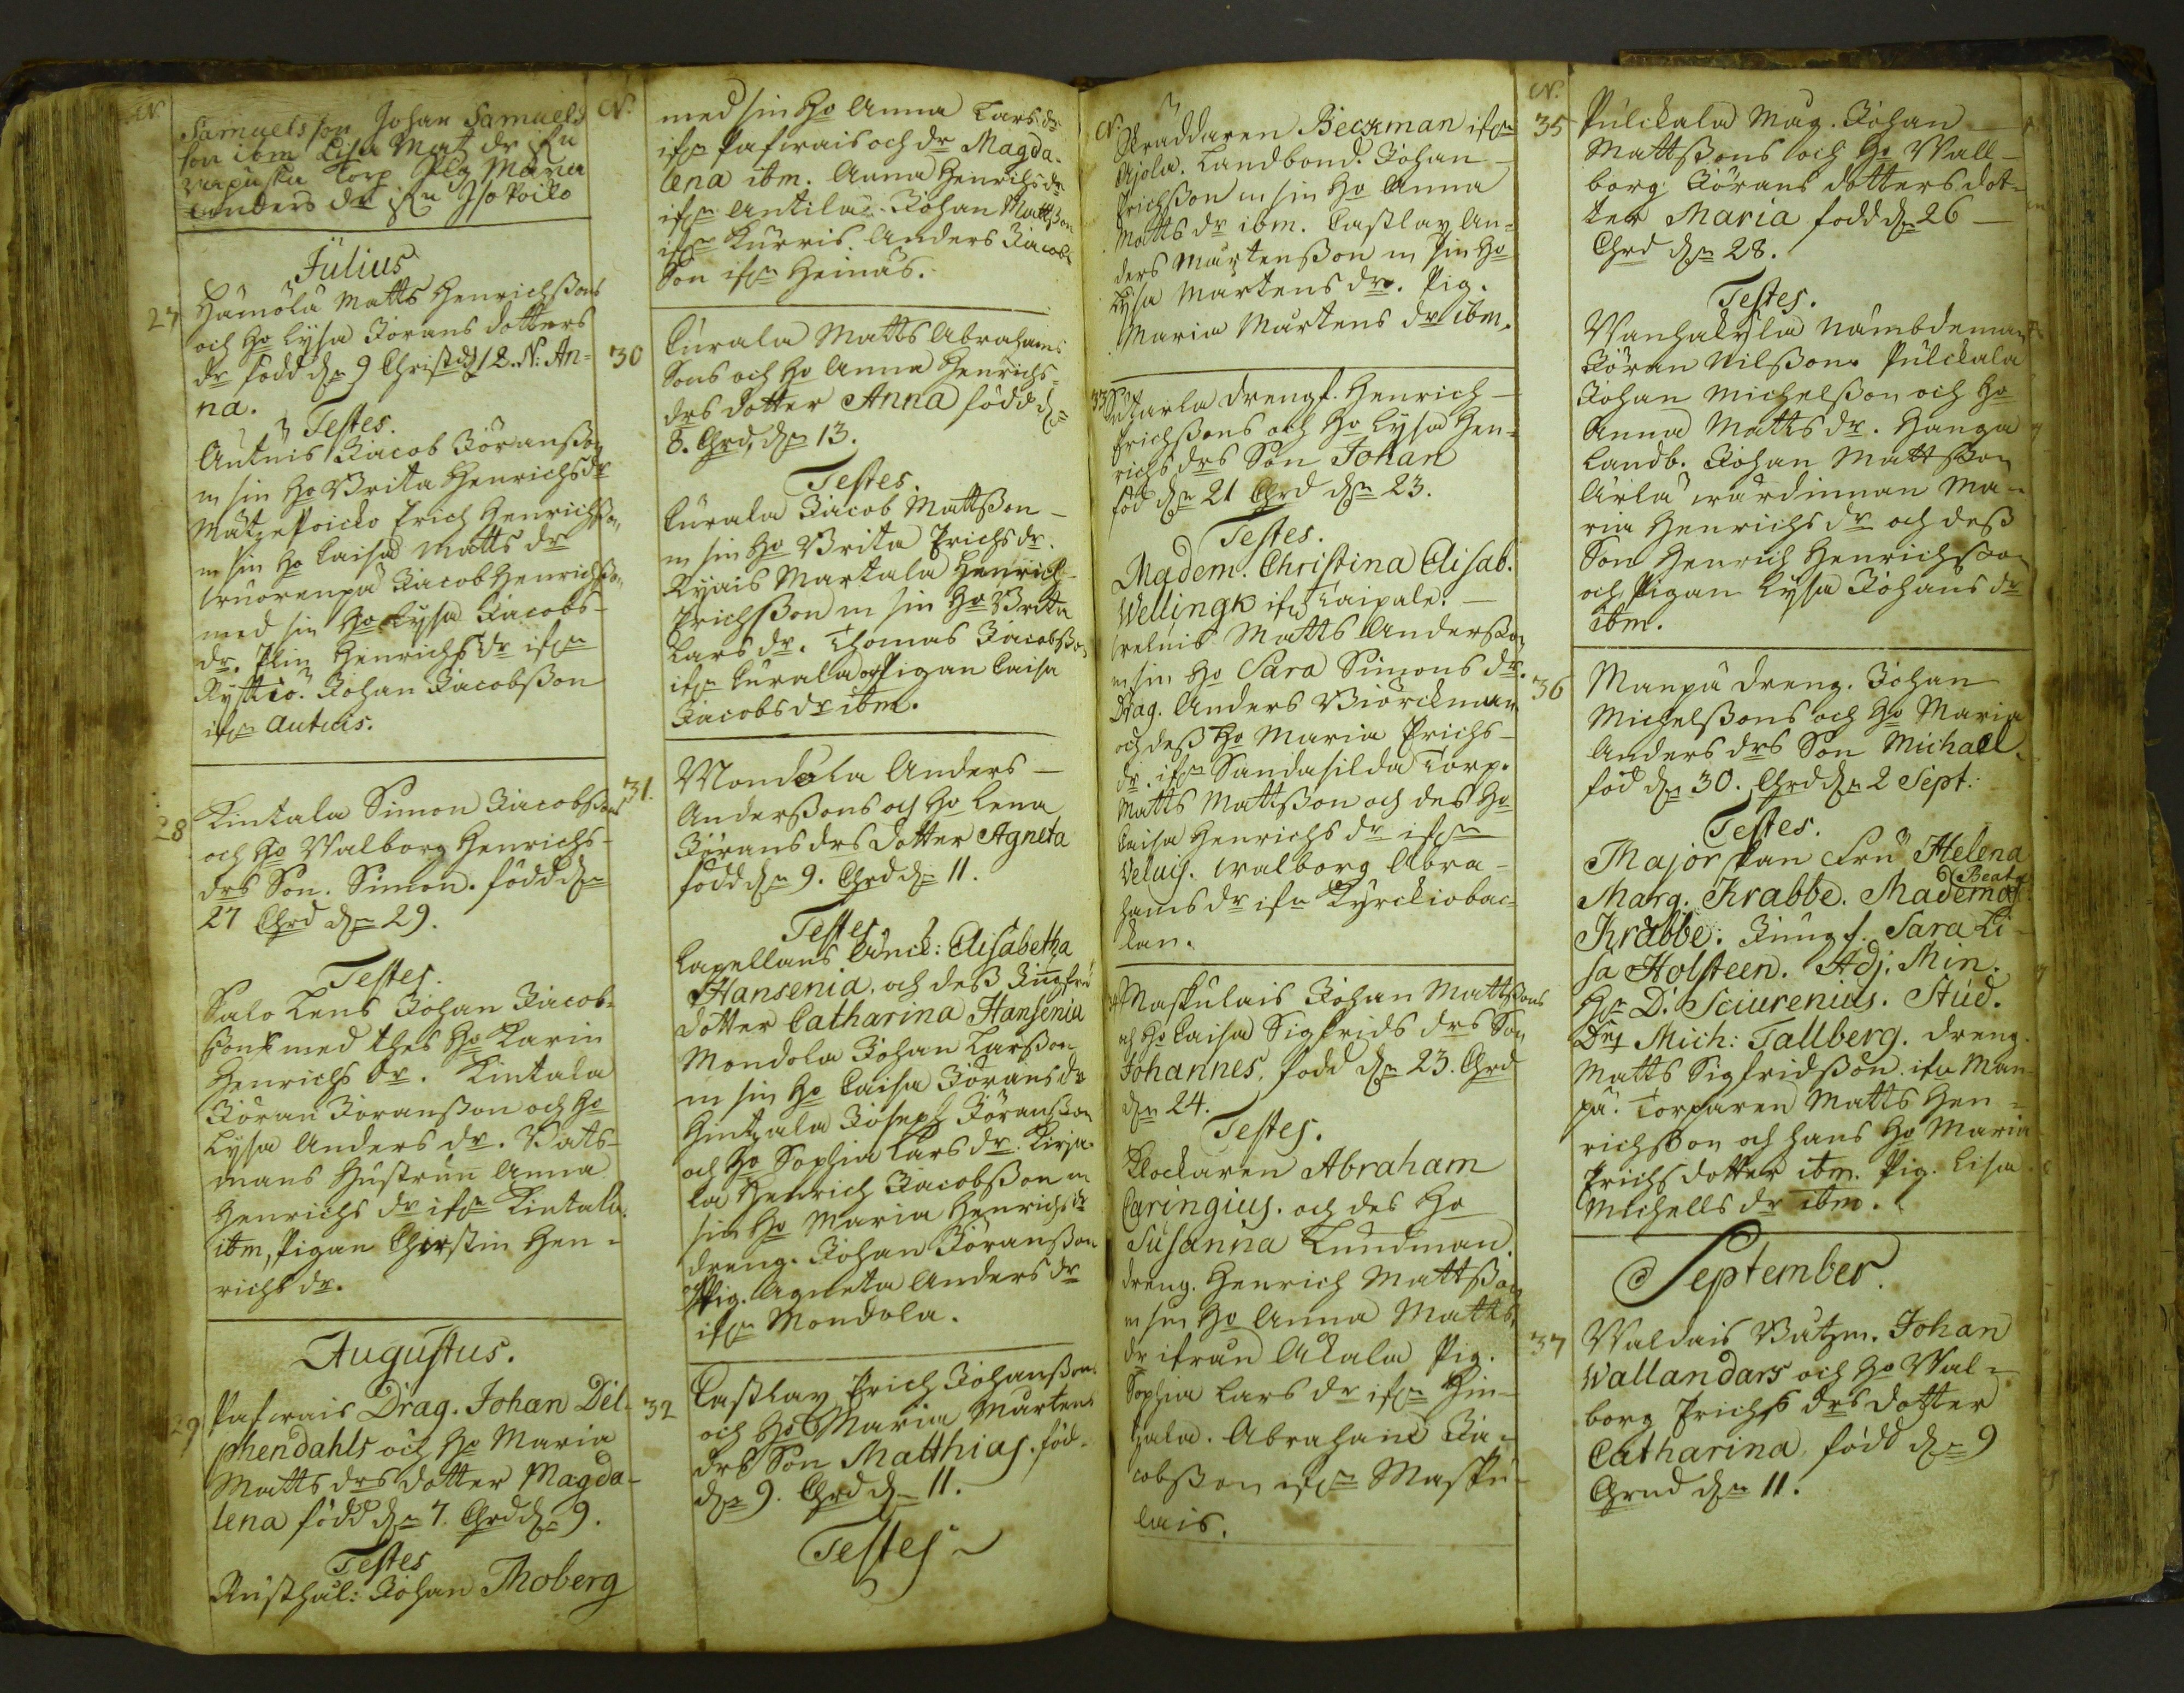 N.
Samuels son Johan Samuels
son ibm Lisa Mats dr ifn
Torp Pig Maria
Anders dr ifn Isotoilo
Julius
27 Hämölä Matts Henrichssons
och Ho Lysa Jörans dotters
dr född dn 9 Christd 12. N: An=
na.
Testes.
Autuis Jacob Jöransson
m sin Ho Brita Henrichs dr
Erich Henrichsson
m sin Ho Caisa Matts dr
Jacob Henrichsson
med sin Ho Lysa Jacobs-
dr. Elin Henrichs dr ifrn
Johan Jacobsson
ifrn Autuis.
28 Kintala Simon Jacobssons
och Ho Valborg Henrichs-
drs Son. Simon. född dn
27 Chrd dn 29.
Testes.
Salo Lens Johan Jacob-
sons med thes Ho Karin
Henrichs dr. Kintala
Jöran Jöransson och Ho
Lysa Anders dr. Båts-
mans Hustrun Anna
Henrichs dr ifrn Kintala.
ibm, Pigan Chirstin Hen-
richs dr.
Augustus.
29 Pafwais Drag. Johan Del-
phendahls och Ho Maria
Matts drs dotter Magda-
lena född dn 7. Chrd dn 9.
Testes
Rusthål: Johan Thoberg
N.
med sin Ho Anna Lars dr
ifrn Pafwais och dr Magda-
lena ibm. Anna Henrichs dr
ifrn Antila. Johan Mattsson
ifrn Kurris. Anders Jacobs
Son ifrn Heinäs.
30 Curala Matts Abrahams
Sons och Ho Anna Henrichs-
drs dotter Anna född dn
8. Chrd, dn 13.
Testes.
Curala Jacob Mattsson
m sin Ho Brita Erichs dr.
Ryais Martala Henrich
Erichsson m sin Ho Brita
Lars dr. Thomas Jacobsson
ifrn Curala och Pigan Caisa
Jacobs dr ibm.
31. Mondola Anders
Anderssons och Ho Lena
Jörans drs dotter Agneta
född dn 9. Chrd dn 11.
Testes
Capellans Änck: Elisabetha
Hansenia, och dess Jungfru
dotter Catharina Hansenia
Mondola Johan Larsson
m sin Ho Caisa Jörans dr
Hintzala Joseph Jöransson
och Ho Sophia Lars dr. Kirja-
la Henrich Jacobsson m
sin Ho Maria Henrichs dr
dreng. Johan Jöransson
Pig. Agneta Anders dr
ifrn Mondola.
32 Castlax Erich Johanssons
och Ho Maria Mårtens
drs Son Matthias. föd-
dn 9. Chrd dn 11.
Testes
N.
Skräddaren Beckman ifrn
Ajola. Landbond. Johan
Erichsson m sin Ho Anna
Matts dr ibm. Castlax An-
ders Mårtensson m sin Ho
Lysa Mårtens dr. Pig.
Maria Mårtens dr ibm.
33 drengk. Henrich
Erichssons och Ho Lysa Hen-
richs drs Son Johan
föd dn 21 Chrd dn 23.
Testes.
Madem. Christina Elisab.
Wellingk ifrn Taipale.
Matts Andersson
m sin Ho Sara Simons dr.
Drag. Anders Biörckman
och dess Ho Maria Erichs-
dr. ifrn Sandasilda Torp.
Matts Mattsson och des Ho
Caisa Henrichs dr ifrn
Veluis. Walborg Abra-
hams dr ifn Kyrckiobac-
kan.
34 Maskulais Johan Mattssons
och Ho Caisa Sigfrids drs Son
Johannes, född dn 23. Chrd
dn 24.
Testes.
Klockaren Abraham
Caringius. och des Ho
Susanna Lundman.
dreng. Henrich Mattsson
m sin Ho Anna Matts
dr ifrån Akala Pig.
Sophia Lars dr ifrn Hin-
tzala. Abraham Ja-
cobsson ifrn Masku-
lais.
N.
35 Pulckala Mag. Johan
Mattssons och Ho Wall-
borg Jörans dotters dot-
ter Maria född dn 26
Chrd dn 28.
Testes.
Wanhakyla Nämbdeman
Jöran Nilsson. Pulckala
Johan Michelsson och Ho
Anna Matts dr. Hanga
Landb. Johan Mattsson
Ärla wärdinnan Ma-
ria Henrichs dr och dess
Son Henrich Henrichsson
och Pigan Lysa Johans dr
ibm.
36 Manpä dreng. Johan
Michelssons och Ho Maria
Anders drs Son Michael.
föd dn 30. Chrd dn 2 Sept:
Testes.
Majorskan Fru Helena
Marg. Krabbe. Madems Beata
Krabbe. Jungf. Sara Li-
sa Holsteen. Adj. Min.
Hr D. Sciurenius. Stud.
Dn Mich: Tallberg. dreng.
Matts Sigfridsson ifn Man-
pä. Torparen Matts Hen-
richsson och hans Ho Maria
Erichs dotter ibm. Pig. Lisa
Michells dr ibm.
September.
37 Waldais Båtzm. Johan
Wallandars och Ho Wal-
borg Erichs drs dotter
Catharina, född dn 9
Chrnd dn 11.